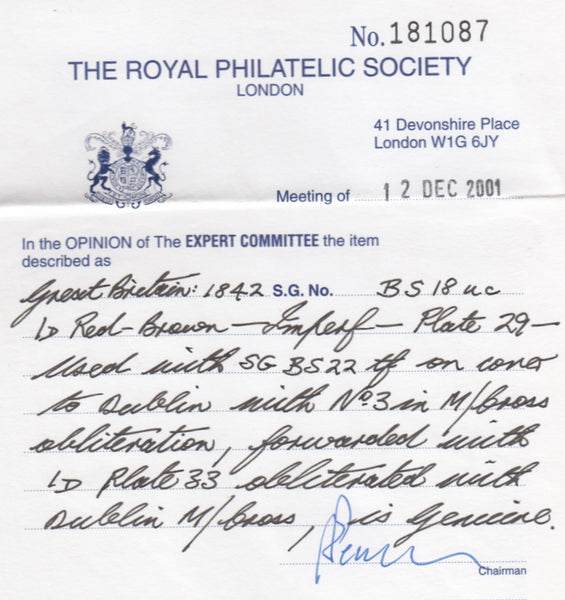 No. 181087
THE ROYAL PHILATELIC SOCIETY
LONDON
41 Devonshire Place
London W1G 6JY
Meeting of 12 DEC 2001
In the OPINION of The EXPERT COMMITTEE the item
described as
Great Britain: 1842 S.G. No. BS18uc
1D Red-Brown - Imperf - Plate 29 -
Used with SG BS22 tf on cover
to Dublin with No 3 in M/Cross
obliteration, forwarded with
1D Plate 33 obliterated with
Dublin M/Cross, is Genuine.
Chairman